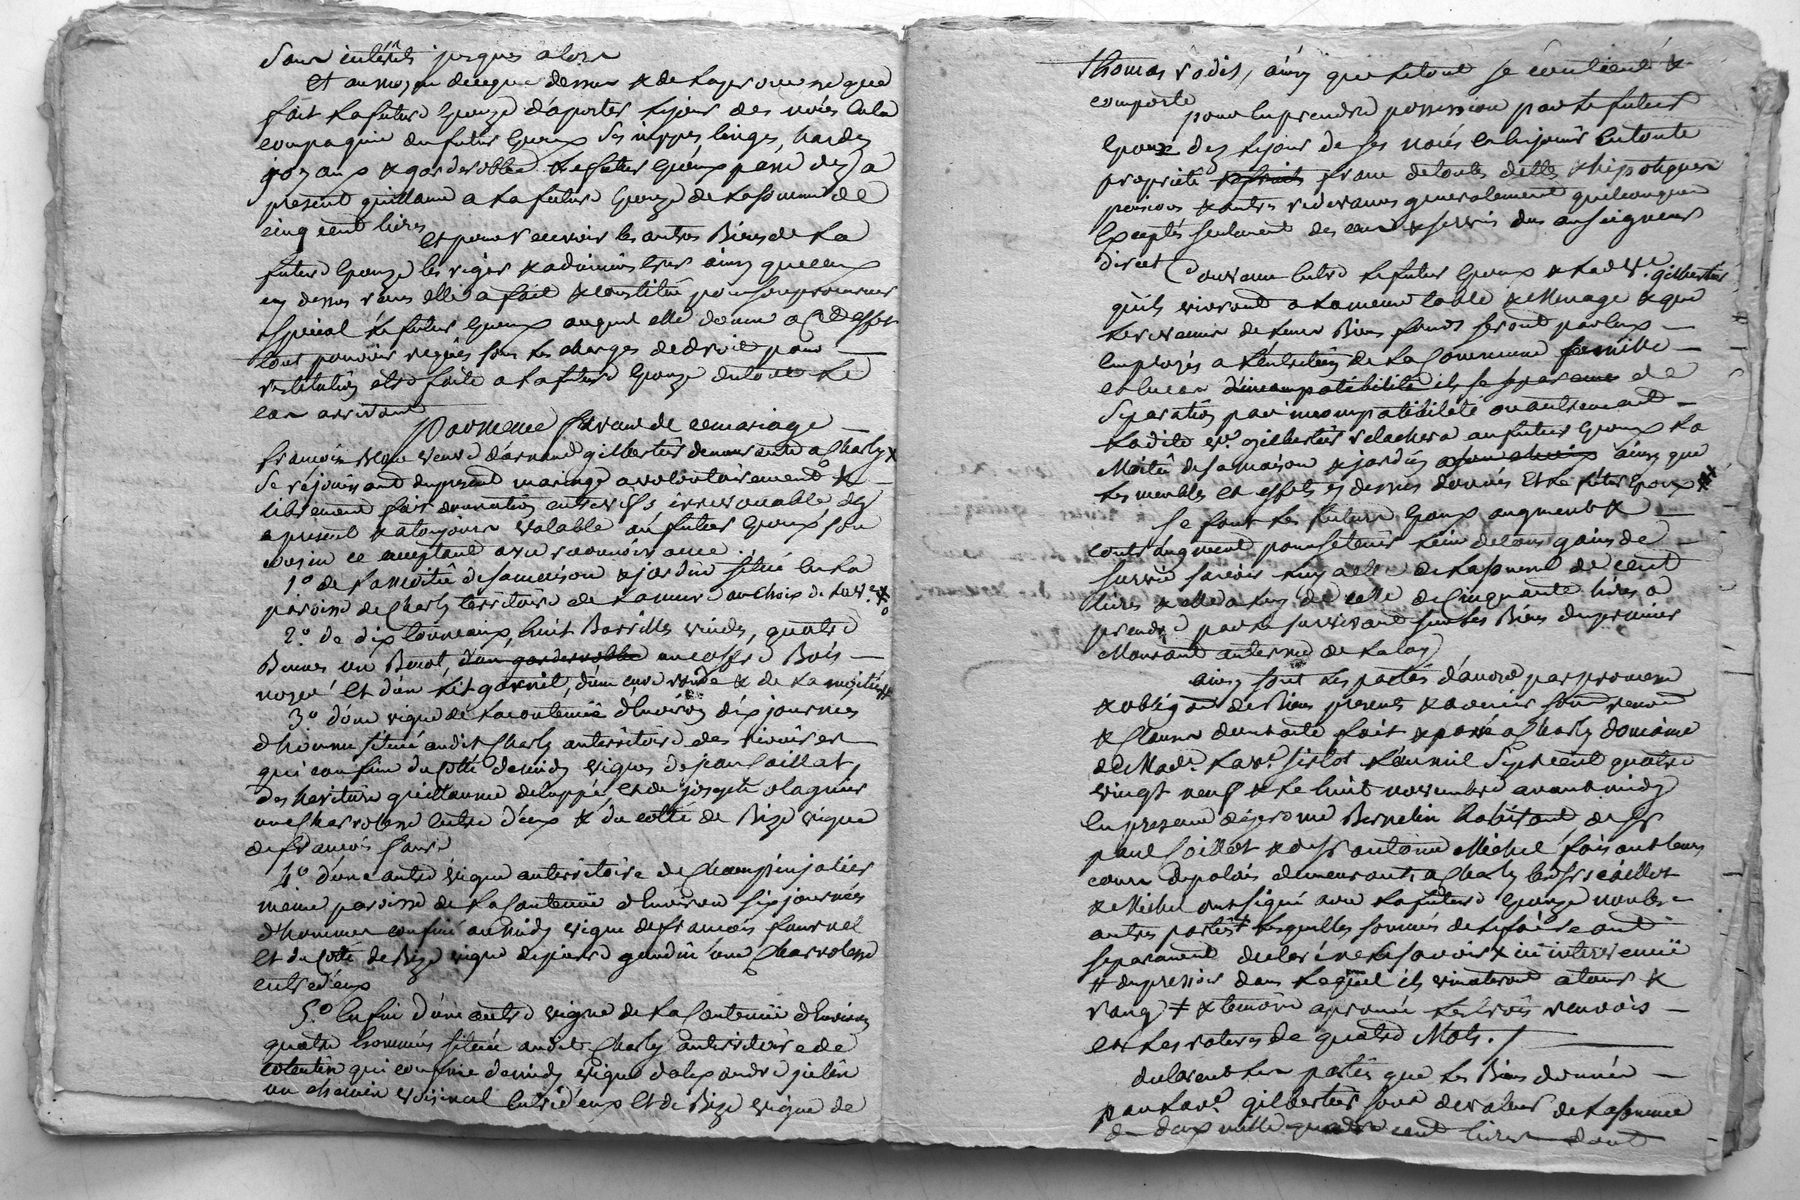 Sans intérêts jusques alors
Et au moyen de ce que dessus & de la promesse que
fait la future Epouze d'aporter le jour des noces en la
compagnie du futur Epoux Ses nippes linges, hardes
joyaux & garderobbe le futur Epoux passe dez a
present quittance a la future Epouze de la somme de
cinq cent livres
Et pour recevoir les autres Biens de la
future Epouze les régir & administrer ainsy que ceux
cy dessus elle a fait & constitué pour son procureur
spécial le futur Epoux auquel elle donne a cet effet
tout pouvoir requis sous les charges de droit pour
restitution etre faite a la future Epouze du tout le
cas arrivant
Par meme faveur de ce mariage
françoise veuve d'arnaud gilbertier demeurante a Charly
Se rejouissant du present mariage a volontairement &
librement fait donnation entre vifs, irrevocable dez
a present & a toujours valable au futur Epoux son
cousin ce acceptant avec reconnoissance.
1° de la moitié de sa maison & jardin situé en la
paroisse de Charly territoire de la mure au choix de la ve
2° de dix tonneaux, huit Barrilles vuides, quatre
Bennes un Benot, d'un garderobbe un coffre Bois
noyer Et d'un Lit garnit, d'une cuve vuide & de la moitié
3° d'une vigne de la contenüe d'Environ dix journées
d'hommes située audit Charly au territoire des
qui confine du cotté de midy vignes de jean Caillat,
des heritiers guillaume et de joseph olagnier
une Charroliere entre d'eux & du cotté de Bize vigne
de françois
4° d'une autre vigne au territoire de
meme paroisse de la Contenüe d'Environ six journées
d'hommes confine au midy vigne de françois fournel
et du Coté de Bize vigne de pierre gaudin une Charroliere
entre d'eux
5° Enfin d'une autre vigne de la Contenüe d'Environ
quatre hommées située audit Charly au territoire de
cotentin qui confine de midy vigne d'alexandre julien
un chemin voisinal Entre d'eux Et de Bize vigne de
Thomas radix, ainsy que le tout se contient &
comporte
pour En prendre possession par le futur
Epoux dez le jour de ses noces en en jouir En toute
propriété franc de toutes dettes & hipotheques
pensions & autres redevances generalement quelconques
Exceptés seulement des cens & servis dus au seigneur
direct Convenu Entre le futur Epoux & lad. ve. gilbertier
qu'ils vivront a la meme table & Menage & que
les revenus de leurs Biens fonds seront par Eux
employés a l'entretien de la Commune famille
et en cas d'incompatibilité de
Separation par incompatibilité ou autrement
Ladite ve. gilbertier relachera au futur Epoux La
Moitié de sa maison & jardin ainsy que
les meubles et effets cy dessus donnés Et le futur Epoux
Se font les futurs Epoux augment &
contraugment pour Se tenir lieu de tous gains de
survie savoir luy a elle de la somme de cent
livres & elle a luy de celle de Cinquante livres a
prendre par le survivant sur les Biens du premier
Mourant au terme de la loy
ainsy sont les pactes d'accord par promesse
& obligation de Biens presents & avenir
& Clauses fait & passé a Charly domicile
de Made. La ve. L'an mil Sept cent quatre
vingt neuf & le huit novembre avant midy
En presence de jerome Bernelin habitant de
paul Caillot & de Sr antoine Michel faisant leurs
cours de palais demeurants a Charly lesdts sr caillot
& Michel ont signé avec la future Epouze non les
autres parties lesquelles sommés de le faire ont
separement declaré ne le savoir & cet intervenüe
# du pressoir dans lequel ils a leur &
rang ≠ & temoins aprouvé les trois renvois
et les ratures de quatre Mots. /
declarent les parties que les Biens donnés
par la ve. gilbertier sont de valeur de la somme
de deux mille quatre cent livres dont